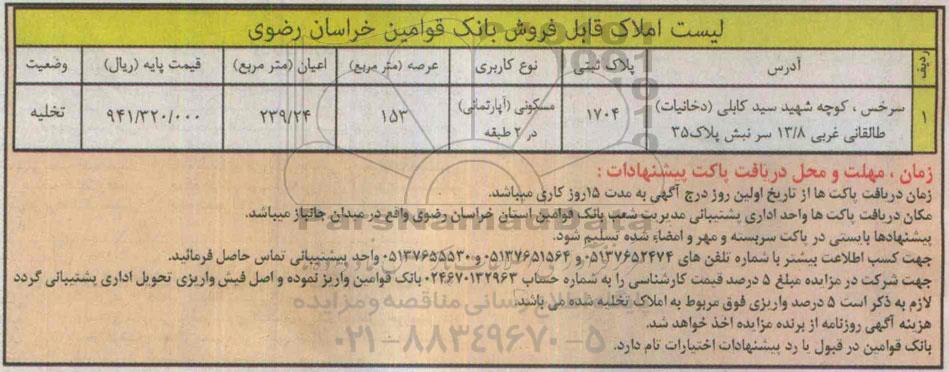 لیست املاک قابل فروش بانک قوامین خراسان رضوی
ردیف آدرس پلاک ثبتی نوع کاربری عرصه (متر مربع) اعیان (متر مربع) قیمت پایه (ریال) وضعیت
۱ سرخس ، کوچه شهید سید کابلی (دخانیات) طالقانی غربی ۱۳/۸ سر نبش پلاک۳۵ ۱۷۰۴ مسکونی (آپارتمانی) در ۲ طبقه ۱۵۳ ۲۳۹/۲۴ ۹۴۱/۳۲۰/۰۰۰ تخلیه
زمان ، مهلت و محل دریافت پاکت پیشنهادات :
زمان دریافت پاکت ها از تاریخ اولین روز درج آگهی به مدت ۱۵روز کاری میباشد.
مکان دریافت پاکت ها واحد اداری پشتیبانی مدیریت شعب بانک قوامین استان خراسان رضوی واقع در میدان جانباز میباشد.
پیشنهادها بایستی در پاکت سربسته و مهر و امضاء شده تسلیم شود.
جهت کسب اطلاعت بیشتر با شماره تلفن های ۰۵۱۳۷۶۵۲۴۷۴و ۰۵۱۳۷۶۵۱۵۶۴ و۰۵۱۳۷۶۵۵۵۳۰ واحد پیشتیبانی تماس حاصل فرمائید.
جهت شرکت در مزایده مبلغ ۵ درصد قیمت کارشناسی را به شماره حساب ۰۲۴۶۷۰۱۳۲۹۶۳ بانک قوامین واریز نموده و اصل فیش واریزی تحویل اداری پشتیبانی گردد
لازم به ذکر است ۵ درصد واریزی فوق مربوط به املاک تخلیه شده می باشد.
هزینه آگهی روزنامه از برنده مزایده اخذ خواهد شد.
بانک قوامین در قبول یا رد پیشنهادات اختیارات تام دارد.
ParsNamadData
۰۲۱-۸۸۳۴۹۶۷۰-۵